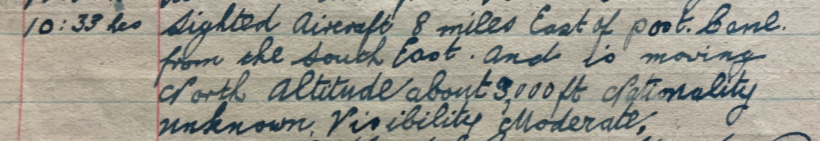 10:33 hrs Sighted Aircraft 8 miles East of post. Came.
from the South East. and is moving
North Altitude about 3,000 ft Nationality
unknown. Visibility Moderate.